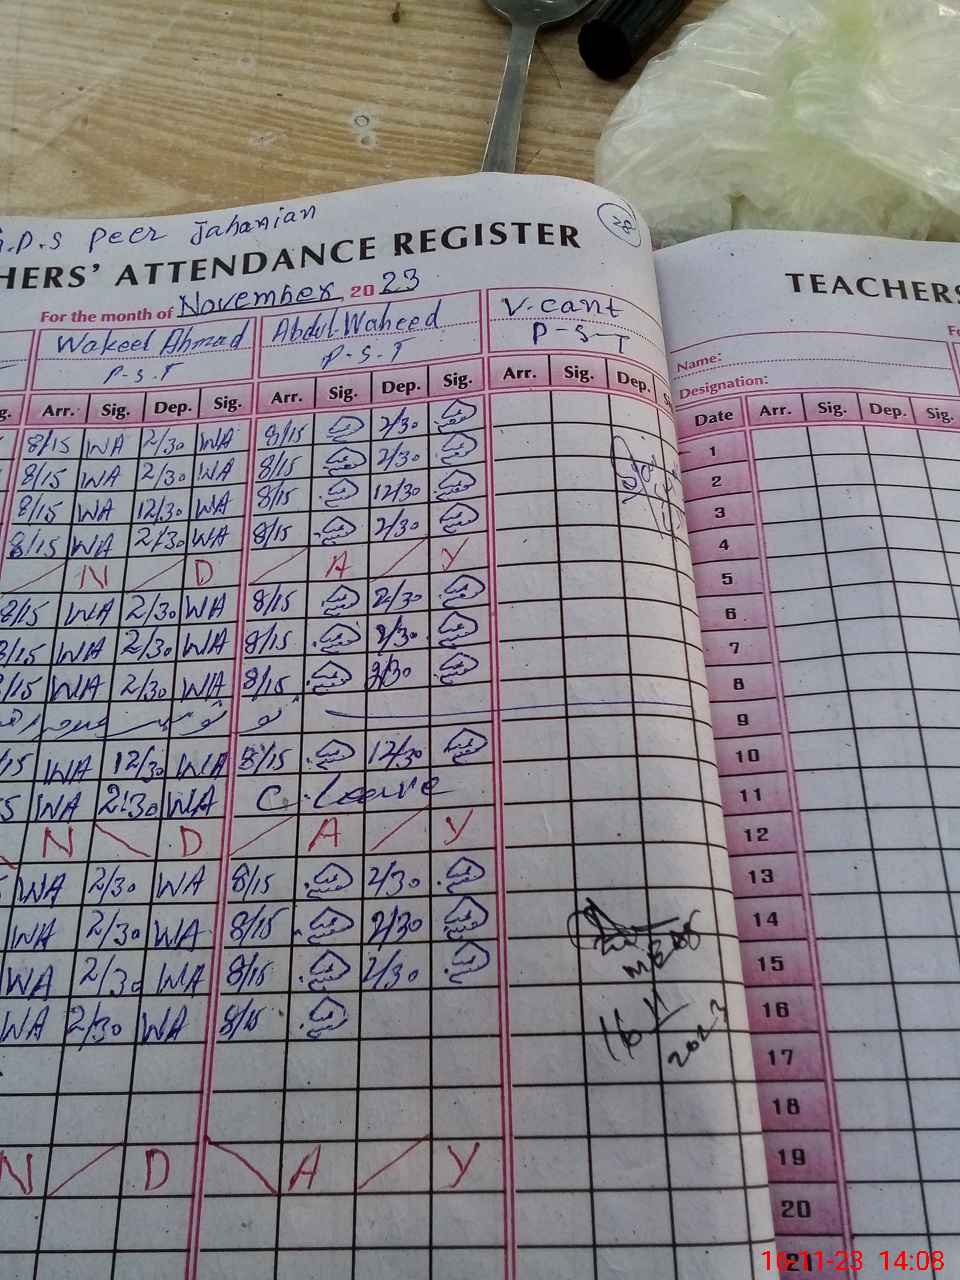 G.P.S Peer Jahanian
HERS' ATTENDANCE REGISTER
38
For the month of November 2023
Wakeel Ahmad Abdul Waheed V-cant
P-S.T P-S-T P-S-T
g. Arr. Sig. Dep. Sig. Arr. Sig. Dep. Sig. Arr. Sig. Dep. S
8/15 WA 2/30 WA 8/15 2/30
8/15 WA 2/30 WA 8/15 2/30
8/15 WA 12/30 WA 8/15 12/30
8/15 WA 2/30 WA 8/15 2/30
N D A Y
8/15 WA 2/30 WA 8/15 2/30
8/15 WA 2/30 WA 8/15 2/30
8/15 WA 2/30 WA 8/15 2/30
15 WA 12/30 WA 8/15 12/30
5 WA 2/30 WA C. Leave
N D A Y
WA 2/30 WA 8/15 2/30
WA 2/30 WA 8/15 2/30
WA 2/30 WA 8/15 2/30
WA 2/30 WA 8/15
16/11/2023
N D A Y
TEACHERS
Fo
Name:
Designation:
Date Arr. Sig. Dep. Sig.
1
2
3
4
5
6
7
8
9
10
11
12
13
14
15
16
17
18
19
20
21
16-11-23 14:08